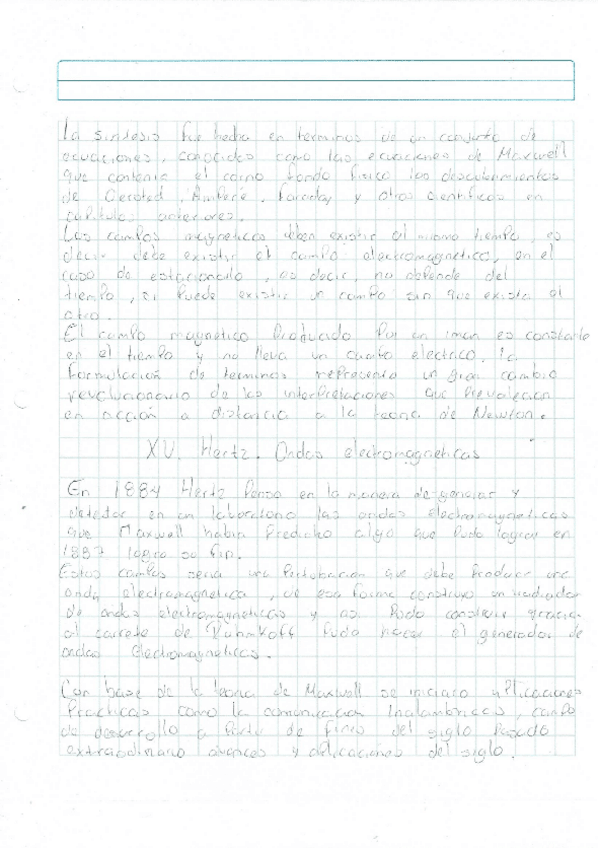 La sintesis fue hecha en terminos de un conjunto de
ecuaciones, conocidas como las ecuaciones de Maxwell
que contenia el como fondo fisico los descubrimientos
de Oersted, Ampere, Faraday y otros cientificos en
capitulos anteriores.
Los campos magneticos deben existir al mismo tiempo, es
decir debe existir el campo electromagnetico, en el
caso de estacionario, es decir, no depende del
tiempo, si puede existir un campo sin que exista el
otro.
El campo magnetico Producido Por un iman es constante
en el tiempo y no lleva un campo electrico. la
Formulación de terminos represento un gran cambio
revolucionario de las interpretaciones que prevalecian
en acción a distancia a la teoria de Newton.
XV. Hertz. Ondas electromagneticas
En 1884 Hertz Penso en la manera de generar y
detectar en un laboratorio las ondas electromagneticas
que Maxwell habia Predicho algo que Pudo lograr en
1887 logro su fin.
Estos campos seria una Perturbacion que debe Producir una
onda electromagnetica, de esa forma construyo un radiador
de ondas electromagneticas y asi Pudo construir gracias
al carrete de Ruhmkoff Pudo hacer el generador de
ondas Electromagneticas.
Con base de la teoria de Maxwell se iniciaro aplicaciones
Practicas como la comunicacion Inalambricas, campo
de desarrollo a Partir de fines del siglo Pasado
extraodinario avances y aplicaciones del siglo.